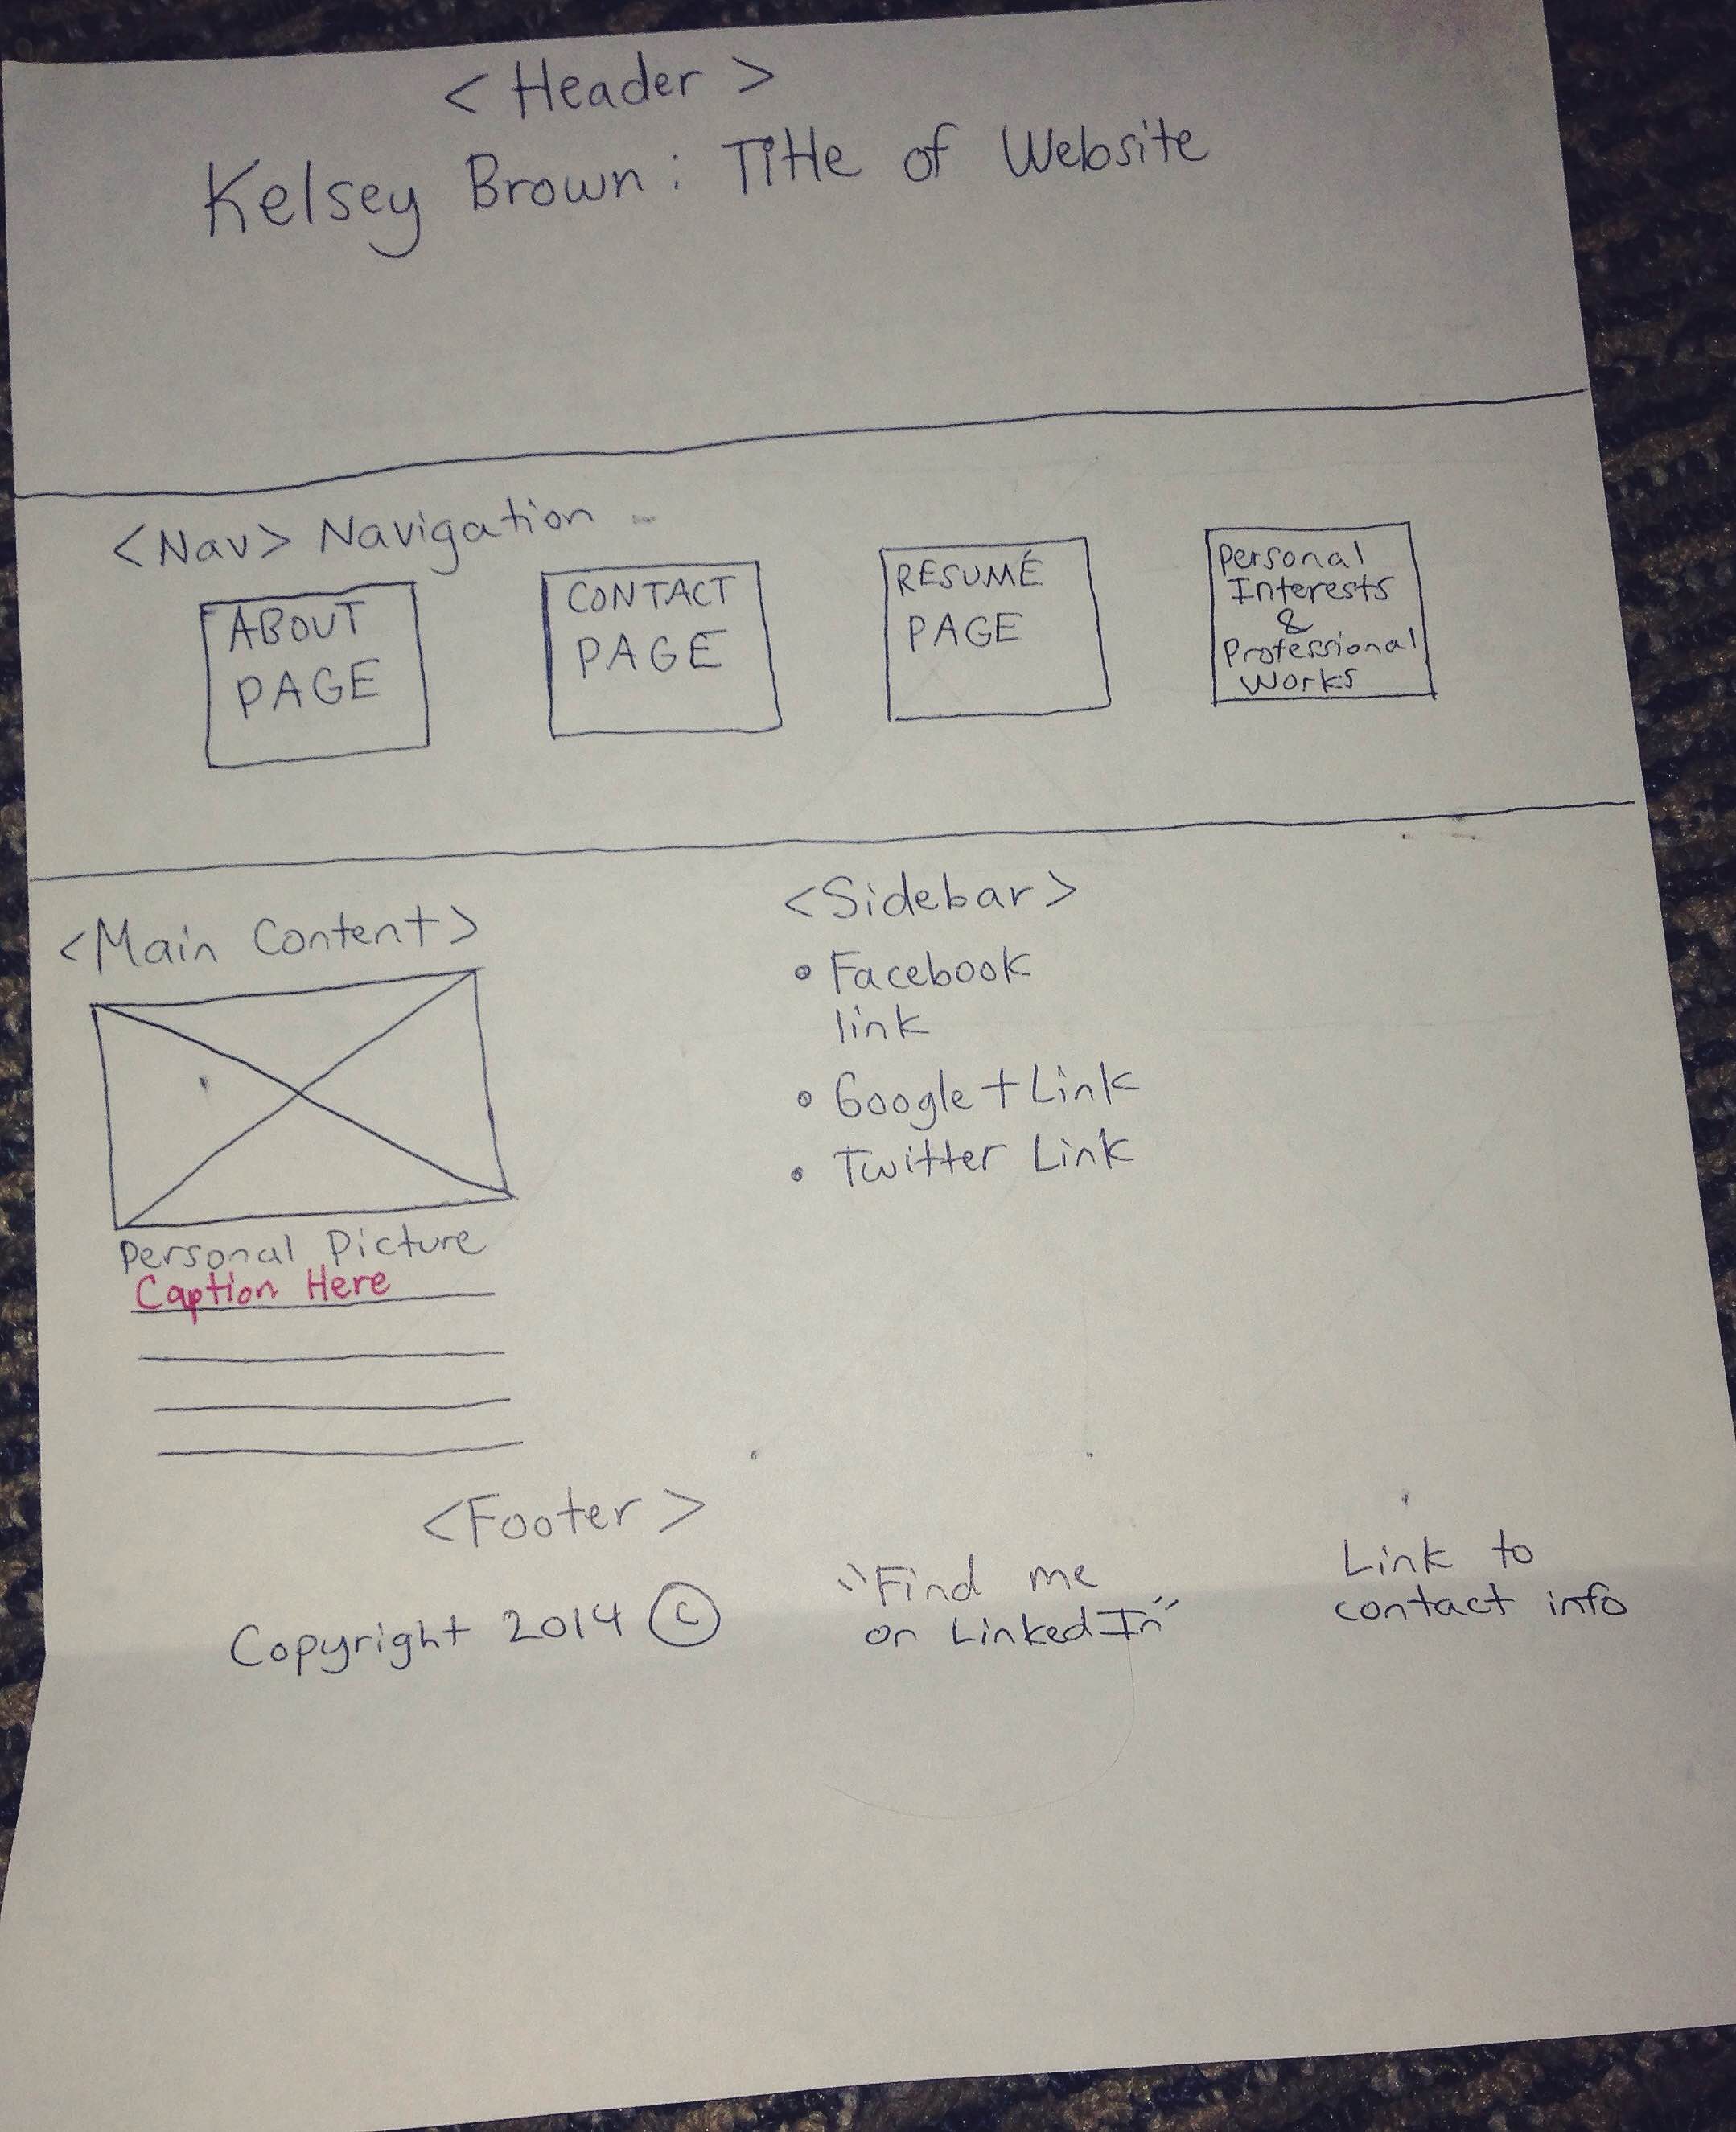 < Header >
Kelsey Brown: Title of Website
<Nav> Navigation
ABOUT
PAGE
CONTACT
PAGE
RESUMÉ
PAGE
Personal
Interests
&
Professional
Works
<Main Content>
Personal Picture
Caption Here
<Sidebar>
• Facebook
link
• Google + Link
• Twitter Link
<Footer>
Copyright 2014 ©
"Find me
on LinkedIn"
Link to
contact info